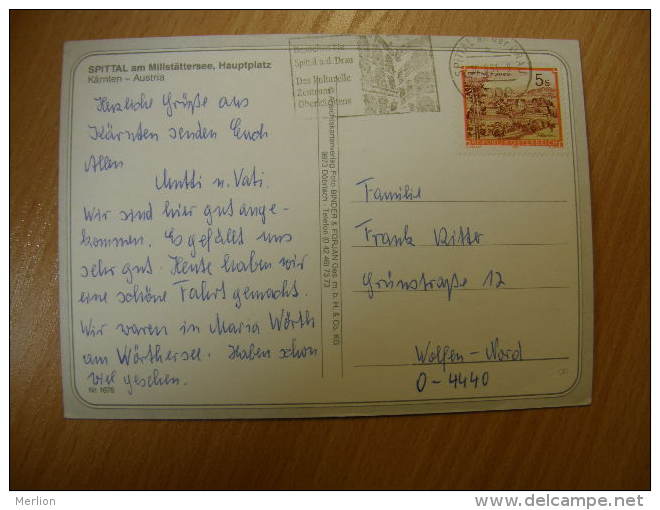 SPITTAL am Millstättersee, Hauptplatz
Kärnten – Austria
Herzliche Grüße aus
Kärnten senden Euch
Allen
Mutti u. Vati.
Wir sind hier gut ange-
kommen. Es gefällt uns
sehr gut. Heute haben wir
eine schöne Fahrt gemacht.
Wir waren in Maria Wörth
am Wörthersee. Haben schon
viel gesehen.
Nr. 1676
Spittal a.d. Drau
Das kulturelle
Zentrum
Oberkärntens
Foto BINDER & FORJAN Ges. m. b. H. & Co. KG
9873 Döbriach - Telefon (0 42 46) 73 73
SPITTAL
5s
REPUBLIK ÖSTERREICH
Familie
Frank Ritter
Grünstraße 12
Wolfen-Nord
O-4440
Merlion
www.delcampe.net